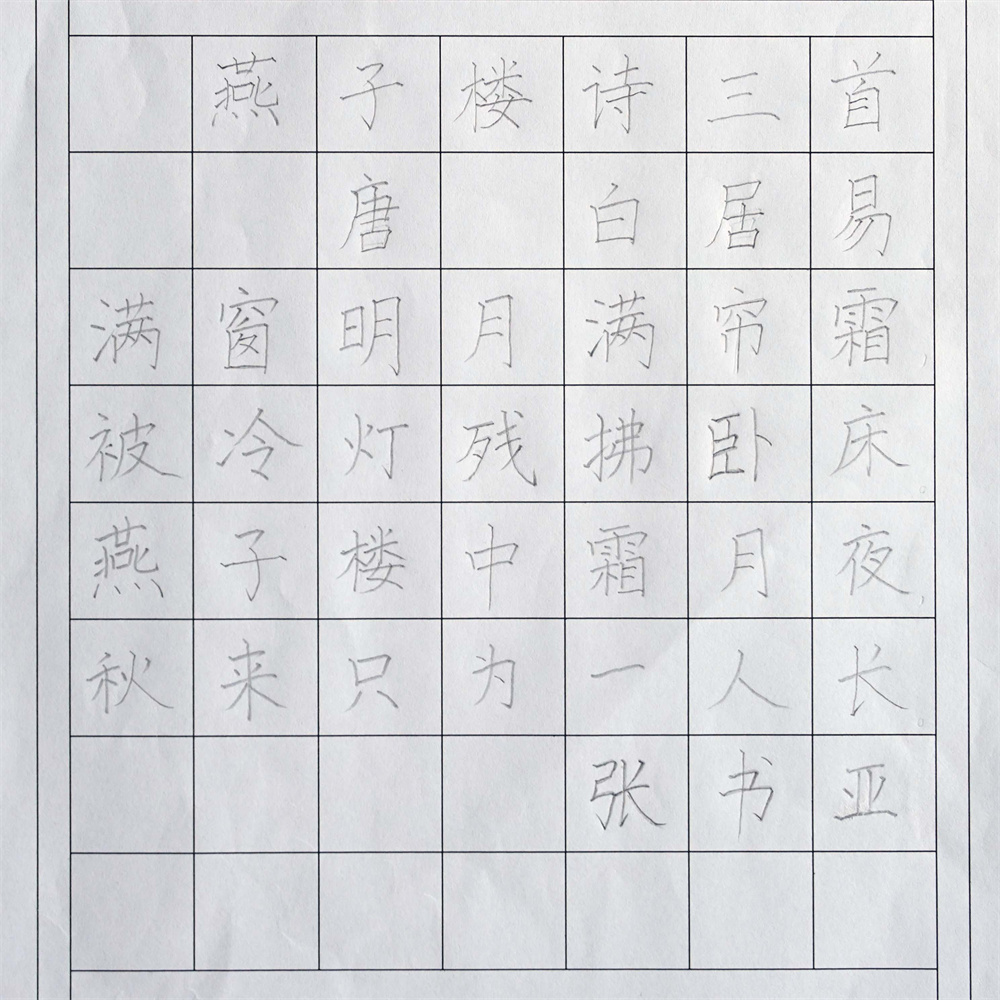 燕子楼诗三首
唐 白居易
满窗明月满帘霜,
被冷灯残拂卧床。
燕子楼中霜月夜,
秋来只为一人长。
张书亚